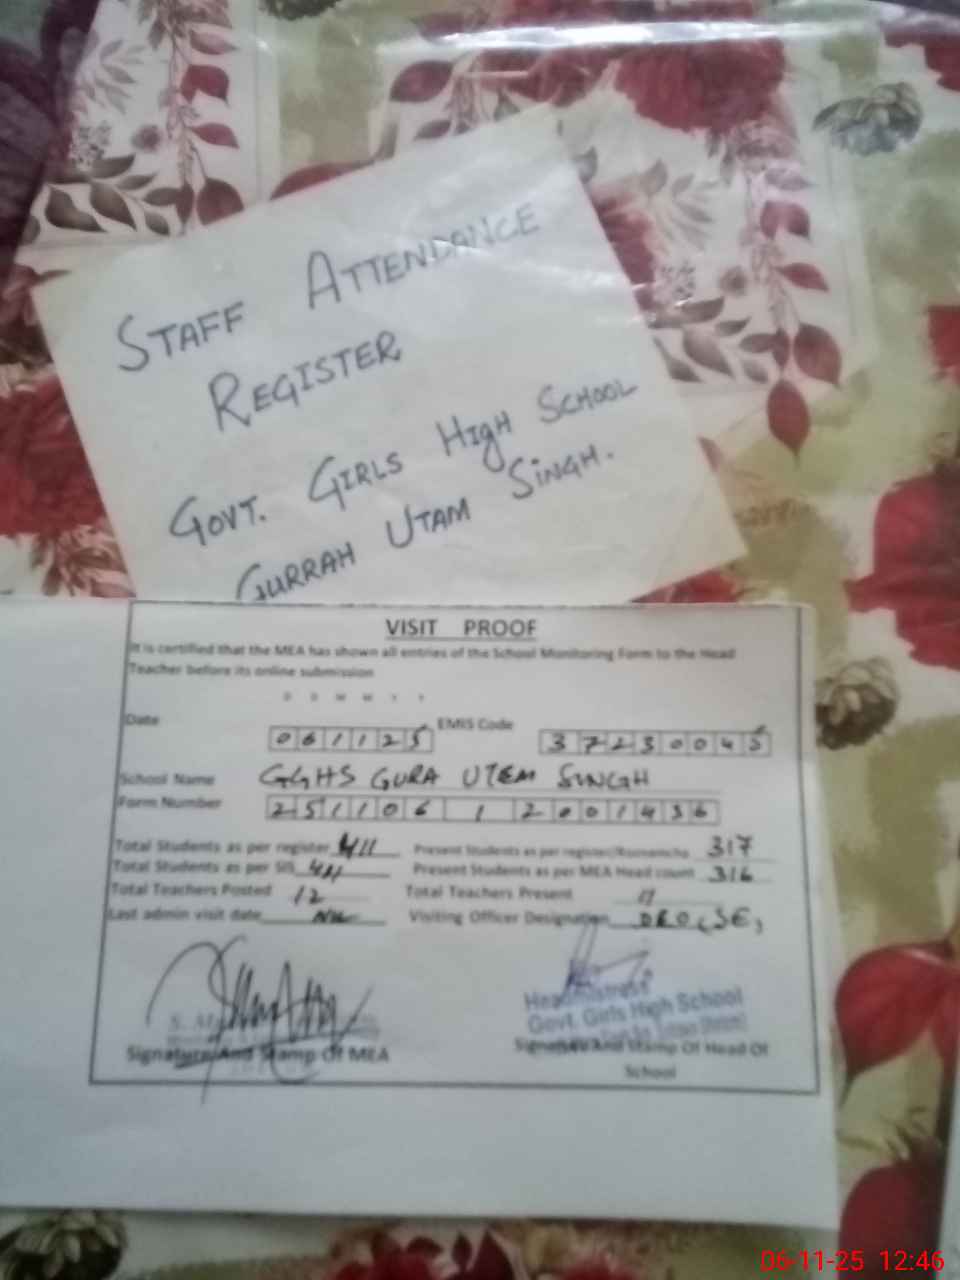 STAFF ATTENDANCE
REGISTER
GOVT. GIRLS HIGH SCHOOL
GURRAH UTAM SINGH.
VISIT PROOF
It is certified that the MEA has shown all entries of the School Monitoring Form to the Head
Teacher before its online submission
D D M M Y Y
Date 061125 EMIS Code 37230045
School Name GGHS GURA UTEM SINGH
Form Number 251106 1 2001436
Total Students as per register 411 Present Students as per register/Roznamcha 317
Total Students as per SIS 411 Present Students as per MEA Head count 316
Total Teachers Posted 12 Total Teachers Present 11
Last admin visit date Visiting Officer Designation
Headmistress
Govt. Girls High School
Signature And Stamp Of MEA Signature And Stamp Of Head Of
School
06-11-25 12:46